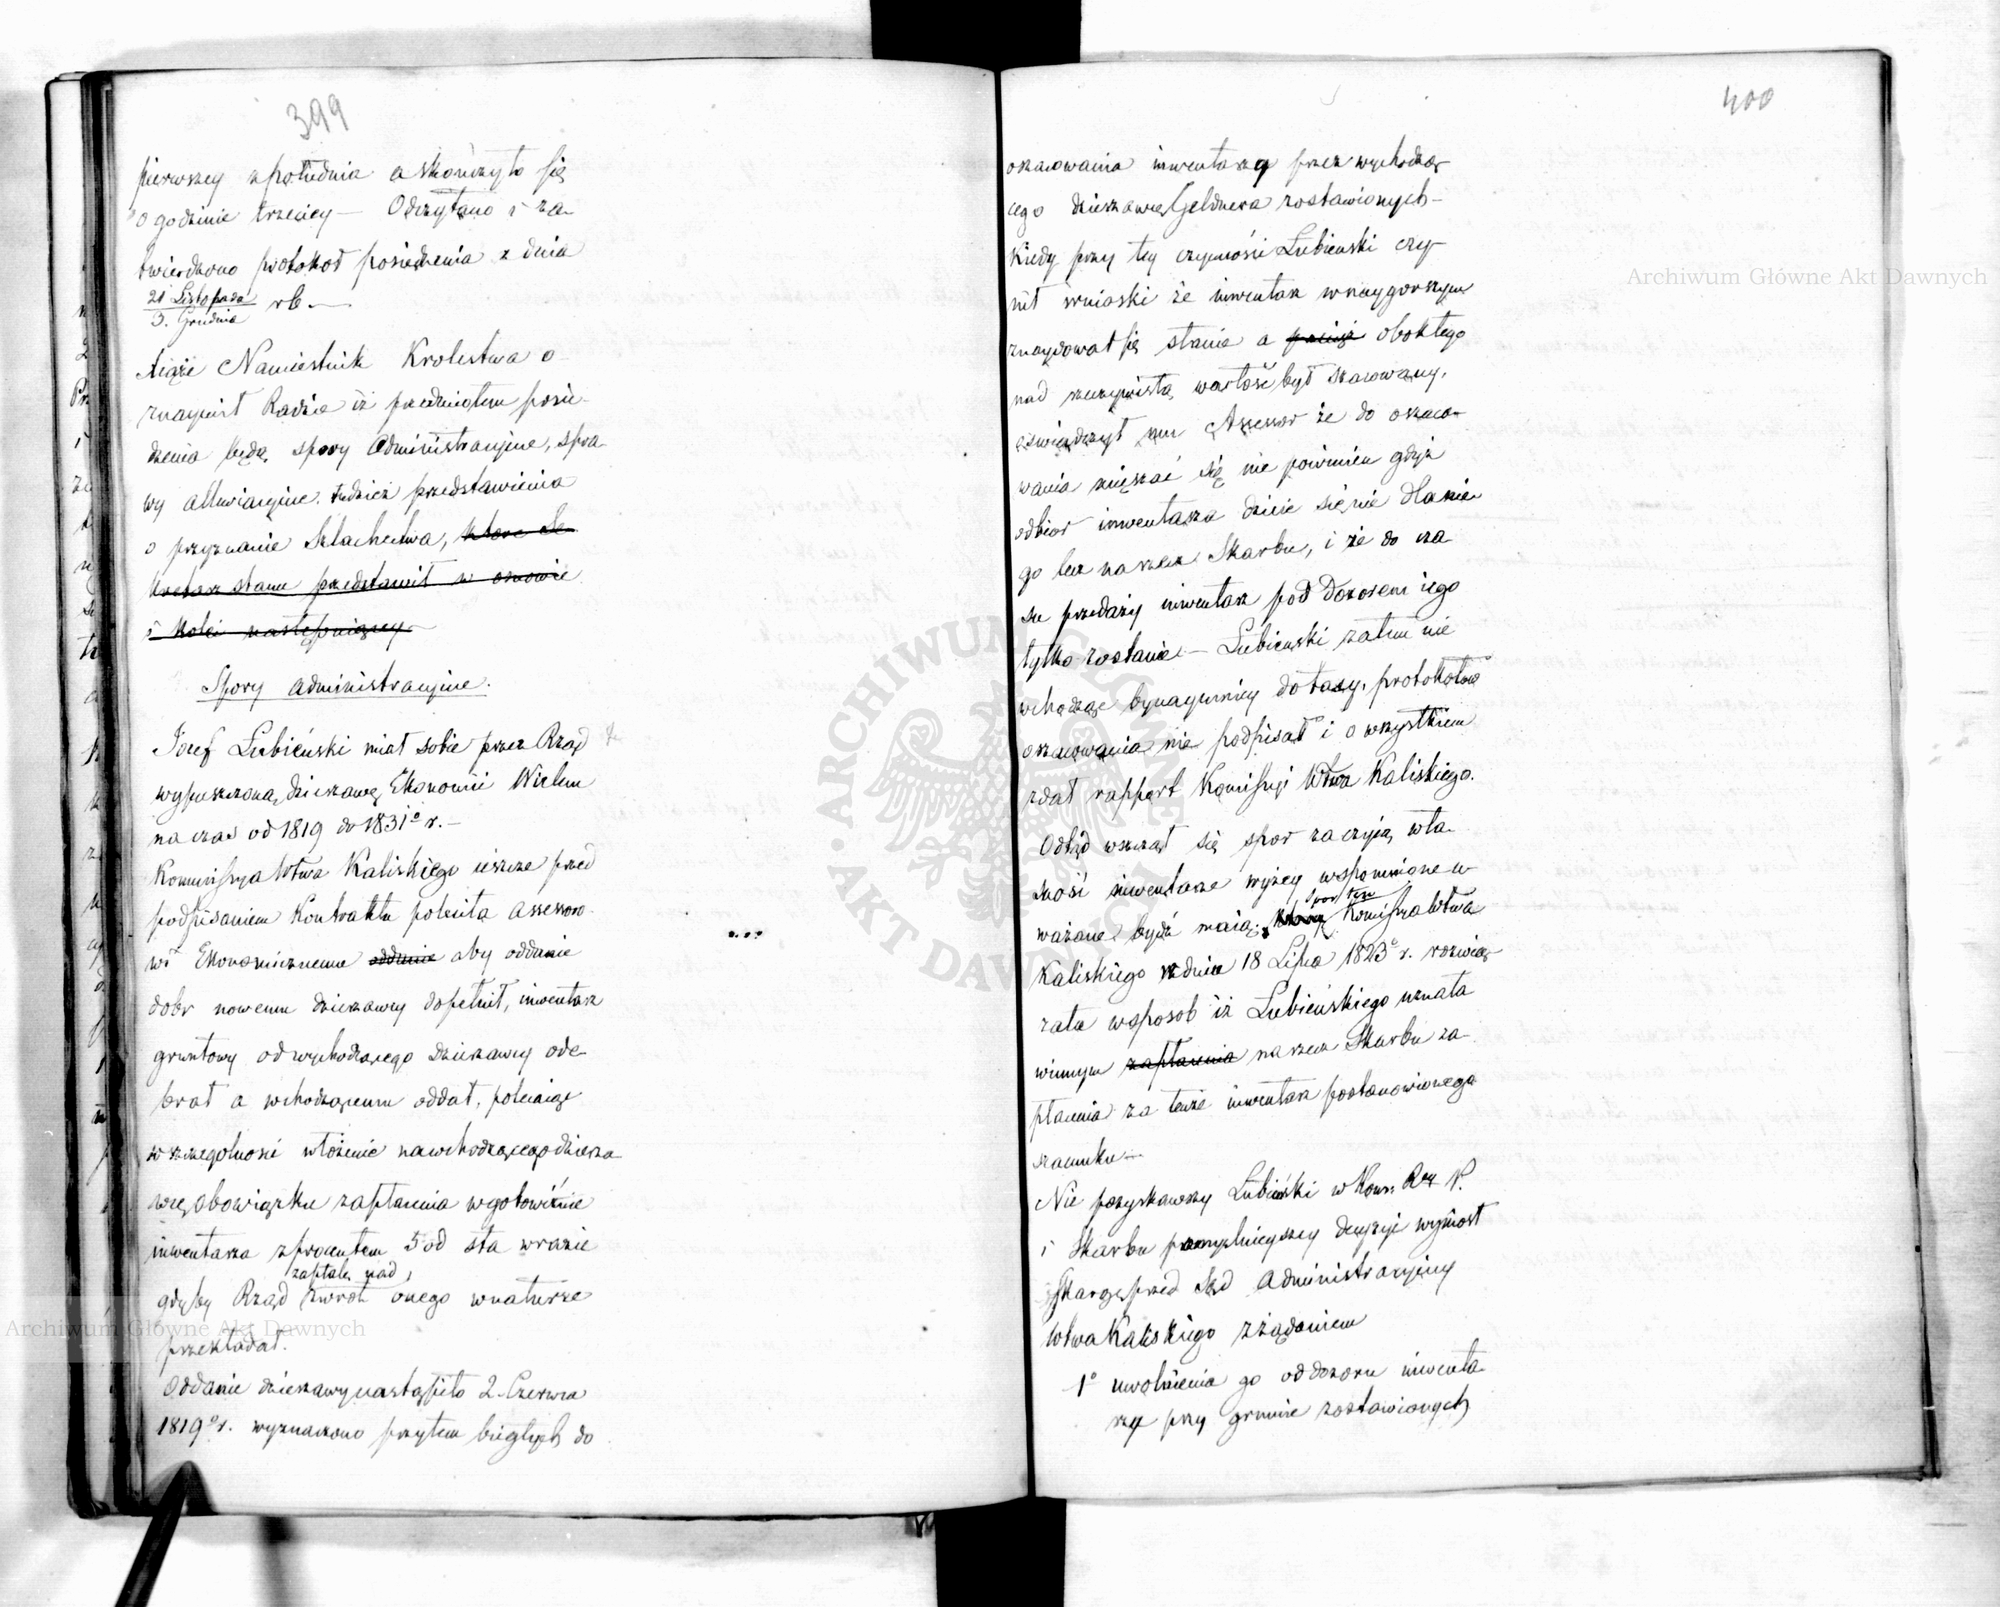 399
pierwszey z południa a skończyło się
o godzinie trzeciey — Odczytano i za-
twierdzono protokół posiedzenia z dnia
21 Listopada
3. Grudnia
rb. —
Xiąże Namiestnik Krolestwa o-
znaymił Radzie iż przedmiotem posie-
dzenia będą spory Administracyine, spra-
wy alluwiacyine tudzież przedstawienia
o przyznanie Szlachectwa, ktore Se-
kretarz stanu przedstawił w osnowie
i kolei następuiącey
Spory administracyine.
Józef Lubieński miał sobie przez Rząd
wypuszczoną dzierżawę Ekonomii Wielun
na czas od 1819 do 1831º r. —
Kommissya Wtwa Kaliskiego ieszcze przed
podpisaniem Kontraktu poleciła Assessoro-
wi Ekonomicznemu oddanie aby oddanie
dobr nowemu dzierżawcy dopełnił, inwentarz
gruntowy od wychodzącego dzierzawcy ode-
brał a wchodzącemu oddał, polecaiąc
w szczegolnosci włożenie na wchodzącego dzierza-
wcę obowiązku zapłacenia w gotowiźnie
inwentarza z procentem 5 od sta w razie
zapłatę nad
gdyby Rząd zwrot onego w naturze
przekładał.
Oddanie dzierzawy nastąpiło 2. Czerwca
1819º r. wyznaczono przytem biegłych do
400
oszacowania inwentarzy przez wychodzą-
cego dzierzawcę Geldnera zostawionych —
Kiedy przy tey czynności Lubieński czy-
nił wnioski że inwentarz w naygorszym
znaydował się stanie a obok tego
nad rzeczywistą wartość był szacowany,
oświadczył mu Assessor że do oszaco-
wania mięszać się nie powinien gdyż
odbior inwentarza dzieie się nie dla nie-
go lecz na rzecz Skarbu, i że do cza-
su przedaży inwentarz pod dozorem iego
tylko zostanie — Lubieński zatem nie
wchodząc bynaymniey do taxy, protokołu
oszacowania nie podpisał i o wszystkiem
zdał rapport Kommissyi Wtwa Kaliskiego.
Odtąd wszczął się spor za czyią wła-
sność inwentarze wyżey wspomnione u-
spor ten
ważane bydź maią; który Komissya Wtwa
Kaliskiego w dniu 18 Lipca 1823º r. rozwią-
zała w sposob iż Lubieńskiego uznała
winnym zapłacenia na rzecz Skarbu za-
płacenia za tenże inwentarz postanowionego
szacunku —
Nie pozyskawszy Lubieński w Kom: Rz. P.
i Skarbu pomyślnieyszey decyzyi wyniosł
Skargę przed Sąd Administracyiny
Wtwa Kaliskiego z żądaniem
1º uwolnienia go od dozoru inwenta-
rzy przy gruncie zostawionych
Archiwum Główne Akt Dawnych
Archiwum Główne Akt Dawnych
ARCHIWUM GŁÓWNE · AKT DAWNYCH ·